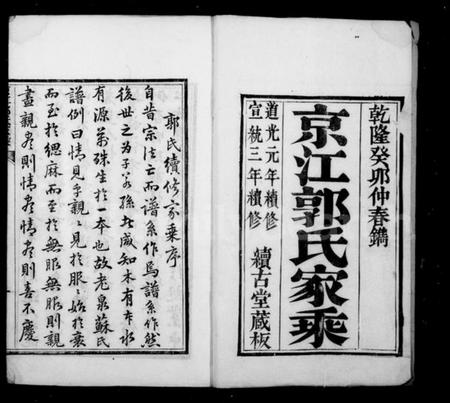 乾隆癸卯仲春鐫
京江郭氏家乘
道光元年續修
宣統三年續修
續古堂藏板
郭氏續修家乘序
自昔宗法亡而譜系作焉譜系作然
後世之為子若孫者咸知木有本水
有源萬殊生於一本也故老泉蘇氏
譜例曰情見乎親親見於服服始於衰
而至於緦麻而至於無服無服則親
盡親盡則情盡情盡則喜不慶